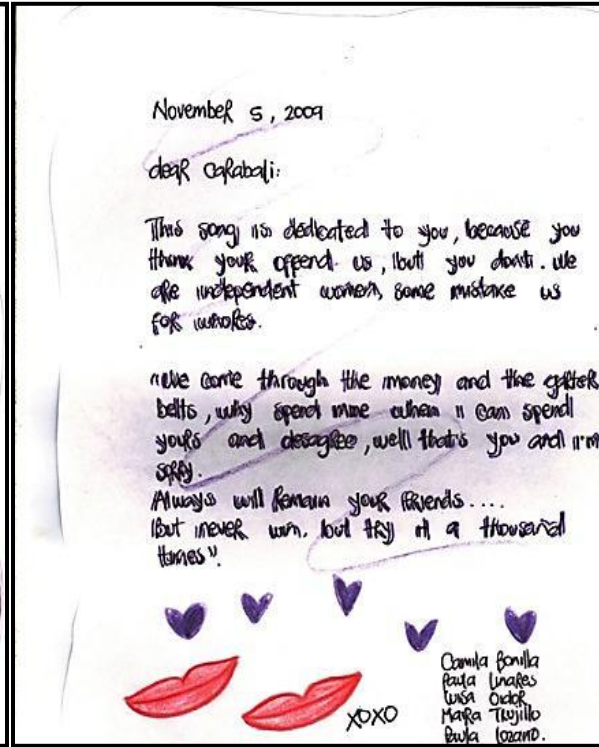 November 5, 2009
dear Carabali:
This song is dedicated to you, because you
think your offend us, but you don't. We
are independent women, some mistake us
for whores.
come through the money and the garter
belts, why spend mine when I can spend
yours and desagree, well that's you and I'm
sorry.
Always will Remain your friends....
But never win. but try it a thousand
times".
XOXO
Camila Bonilla
Paula Linares
Luisa
Maira Trujillo
Paula Lozano.